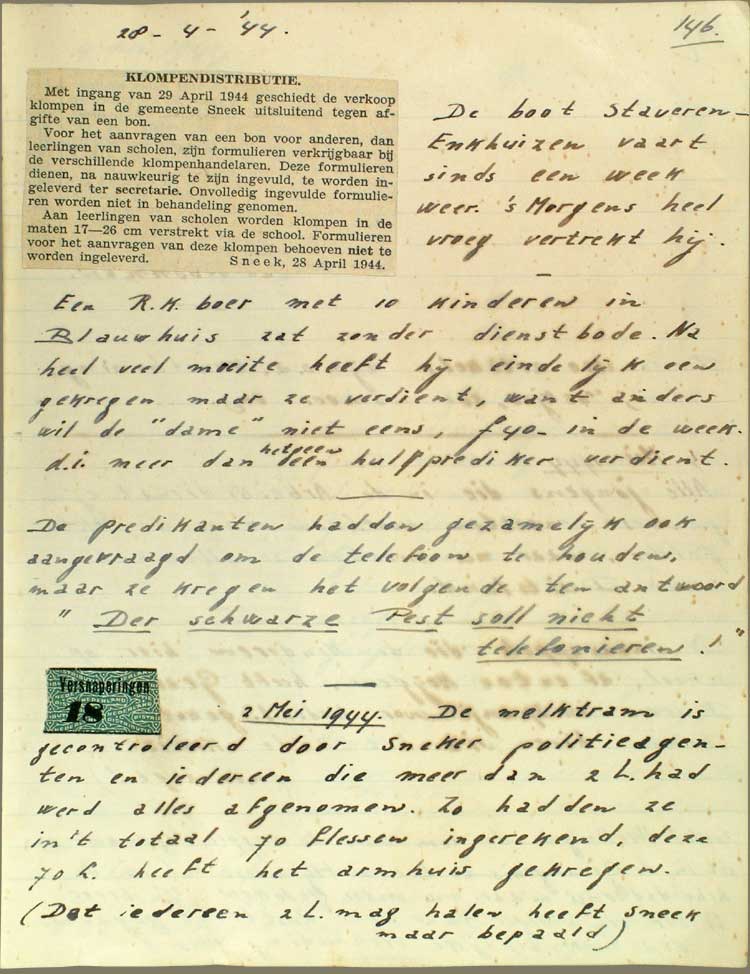 28 - 4 - '44.
146.
KLOMPENDISTRIBUTIE.
Met ingang van 29 April 1944 geschiedt de verkoop
klompen in de gemeente Sneek uitsluitend tegen af-
gifte van een bon.
Voor het aanvragen van een bon voor anderen, dan
leerlingen van scholen, zijn formulieren verkrijgbaar bij
de verschillende klompenhandelaren. Deze formulieren
dienen, na nauwkeurig te zijn ingevuld, te worden in-
geleverd ter secretarie. Onvolledig ingevulde formulie-
ren worden niet in behandeling genomen.
Aan leerlingen van scholen worden klompen in de
maten 17—26 cm verstrekt via de school. Formulieren
voor het aanvragen van deze klompen behoeven niet te
worden ingeleverd. Sneek, 28 April 1944.
De boot Staveren-
Enkhuizen vaart
sinds een week
weer. 's Morgens heel
vroeg vertrekt hij.
Een R.K. boer met 10 kinderen in
Blauwhuis zat zonder dienstbode. Na
heel veel moeite heeft hij eindelijk een
gekregen maar ze verdient, want anders
wil de "dame" niet eens, f40- in de week.
d.i. meer dan hetgeen een hulpprediker verdient.
De predikanten hadden gezamelijk ook
aangevraagd om de telefoon te houden,
maar ze kregen het volgende ten antwoord
" Der schwarze Pest soll nicht
telefonieren ! "
Versnaperingen
18
2 Mei 1944. De melktram is
gecontroleerd door Sneker politieagen-
ten en iedereen die meer dan 2 L. had
werd alles afgenomen. Zo hadden ze
in't totaal 70 flessen ingerekend, deze
70 L. heeft het armhuis gekregen.
(Dat iedereen 2 L. mag halen heeft Sneek
maar bepaald)